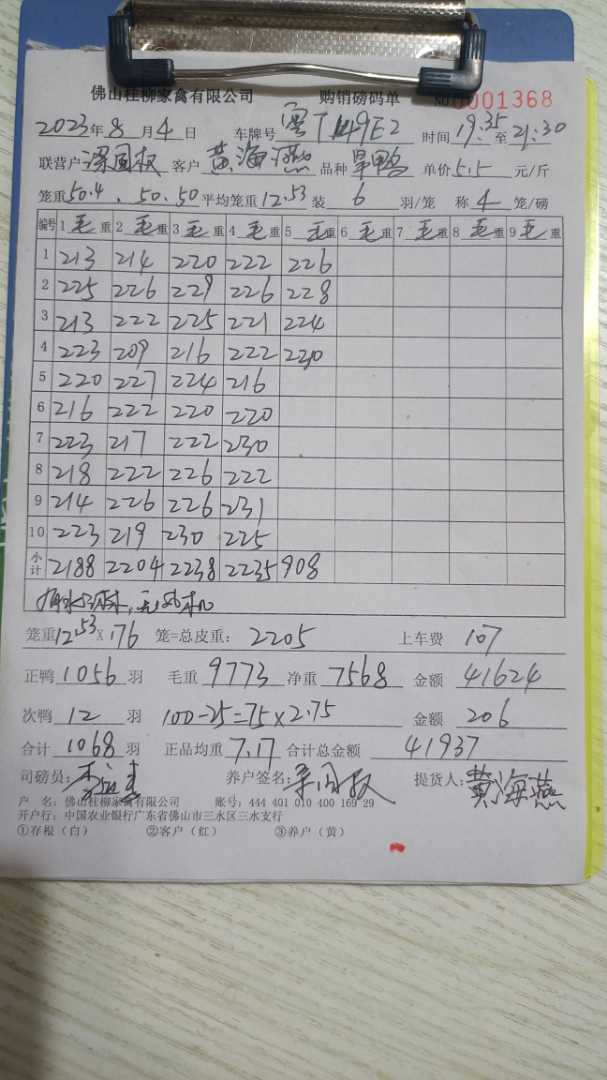 佛山桂柳家禽有限公司 购销磅码单 №0001368
2023年8月4日 车牌号 粤T149E2 时间19:35至21:30
联营户 梁国权 客户 黄海燕 品种 旱鸭 单价5.5元/斤
笼重50.4、50.50平均笼重12.53装6羽/笼 称4笼/磅
编号 1毛重 2毛重 3毛重 4毛重 5毛重 6毛重 7毛重 8毛重 9毛重
1 213 214 220 222 226
2 225 226 229 226 228
3 213 222 225 221 224
4 223 209 216 222 230
5 220 227 224 216
6 216 222 220 220
7 223 217 222 230
8 218 222 226 222
9 214 226 226 231
10 223 219 230 225
小计 2188 2204 2238 2235 908
笼重12.53×176笼=总皮重:2205 上车费 107
正鸭1056羽 毛重9773净重7568 金额41624
次鸭12羽 100-25=75×2.75 金额206
合计1068羽 正品均重7.17合计总金额41937
司磅员: 养户签名: 提货人:黄海燕
户 名:佛山桂柳家禽有限公司 账号:444 401 010 400 169 29
开户行:中国农业银行广东省佛山市三水区三水支行
①存根(白) ②客户(红) ③养户(黄)